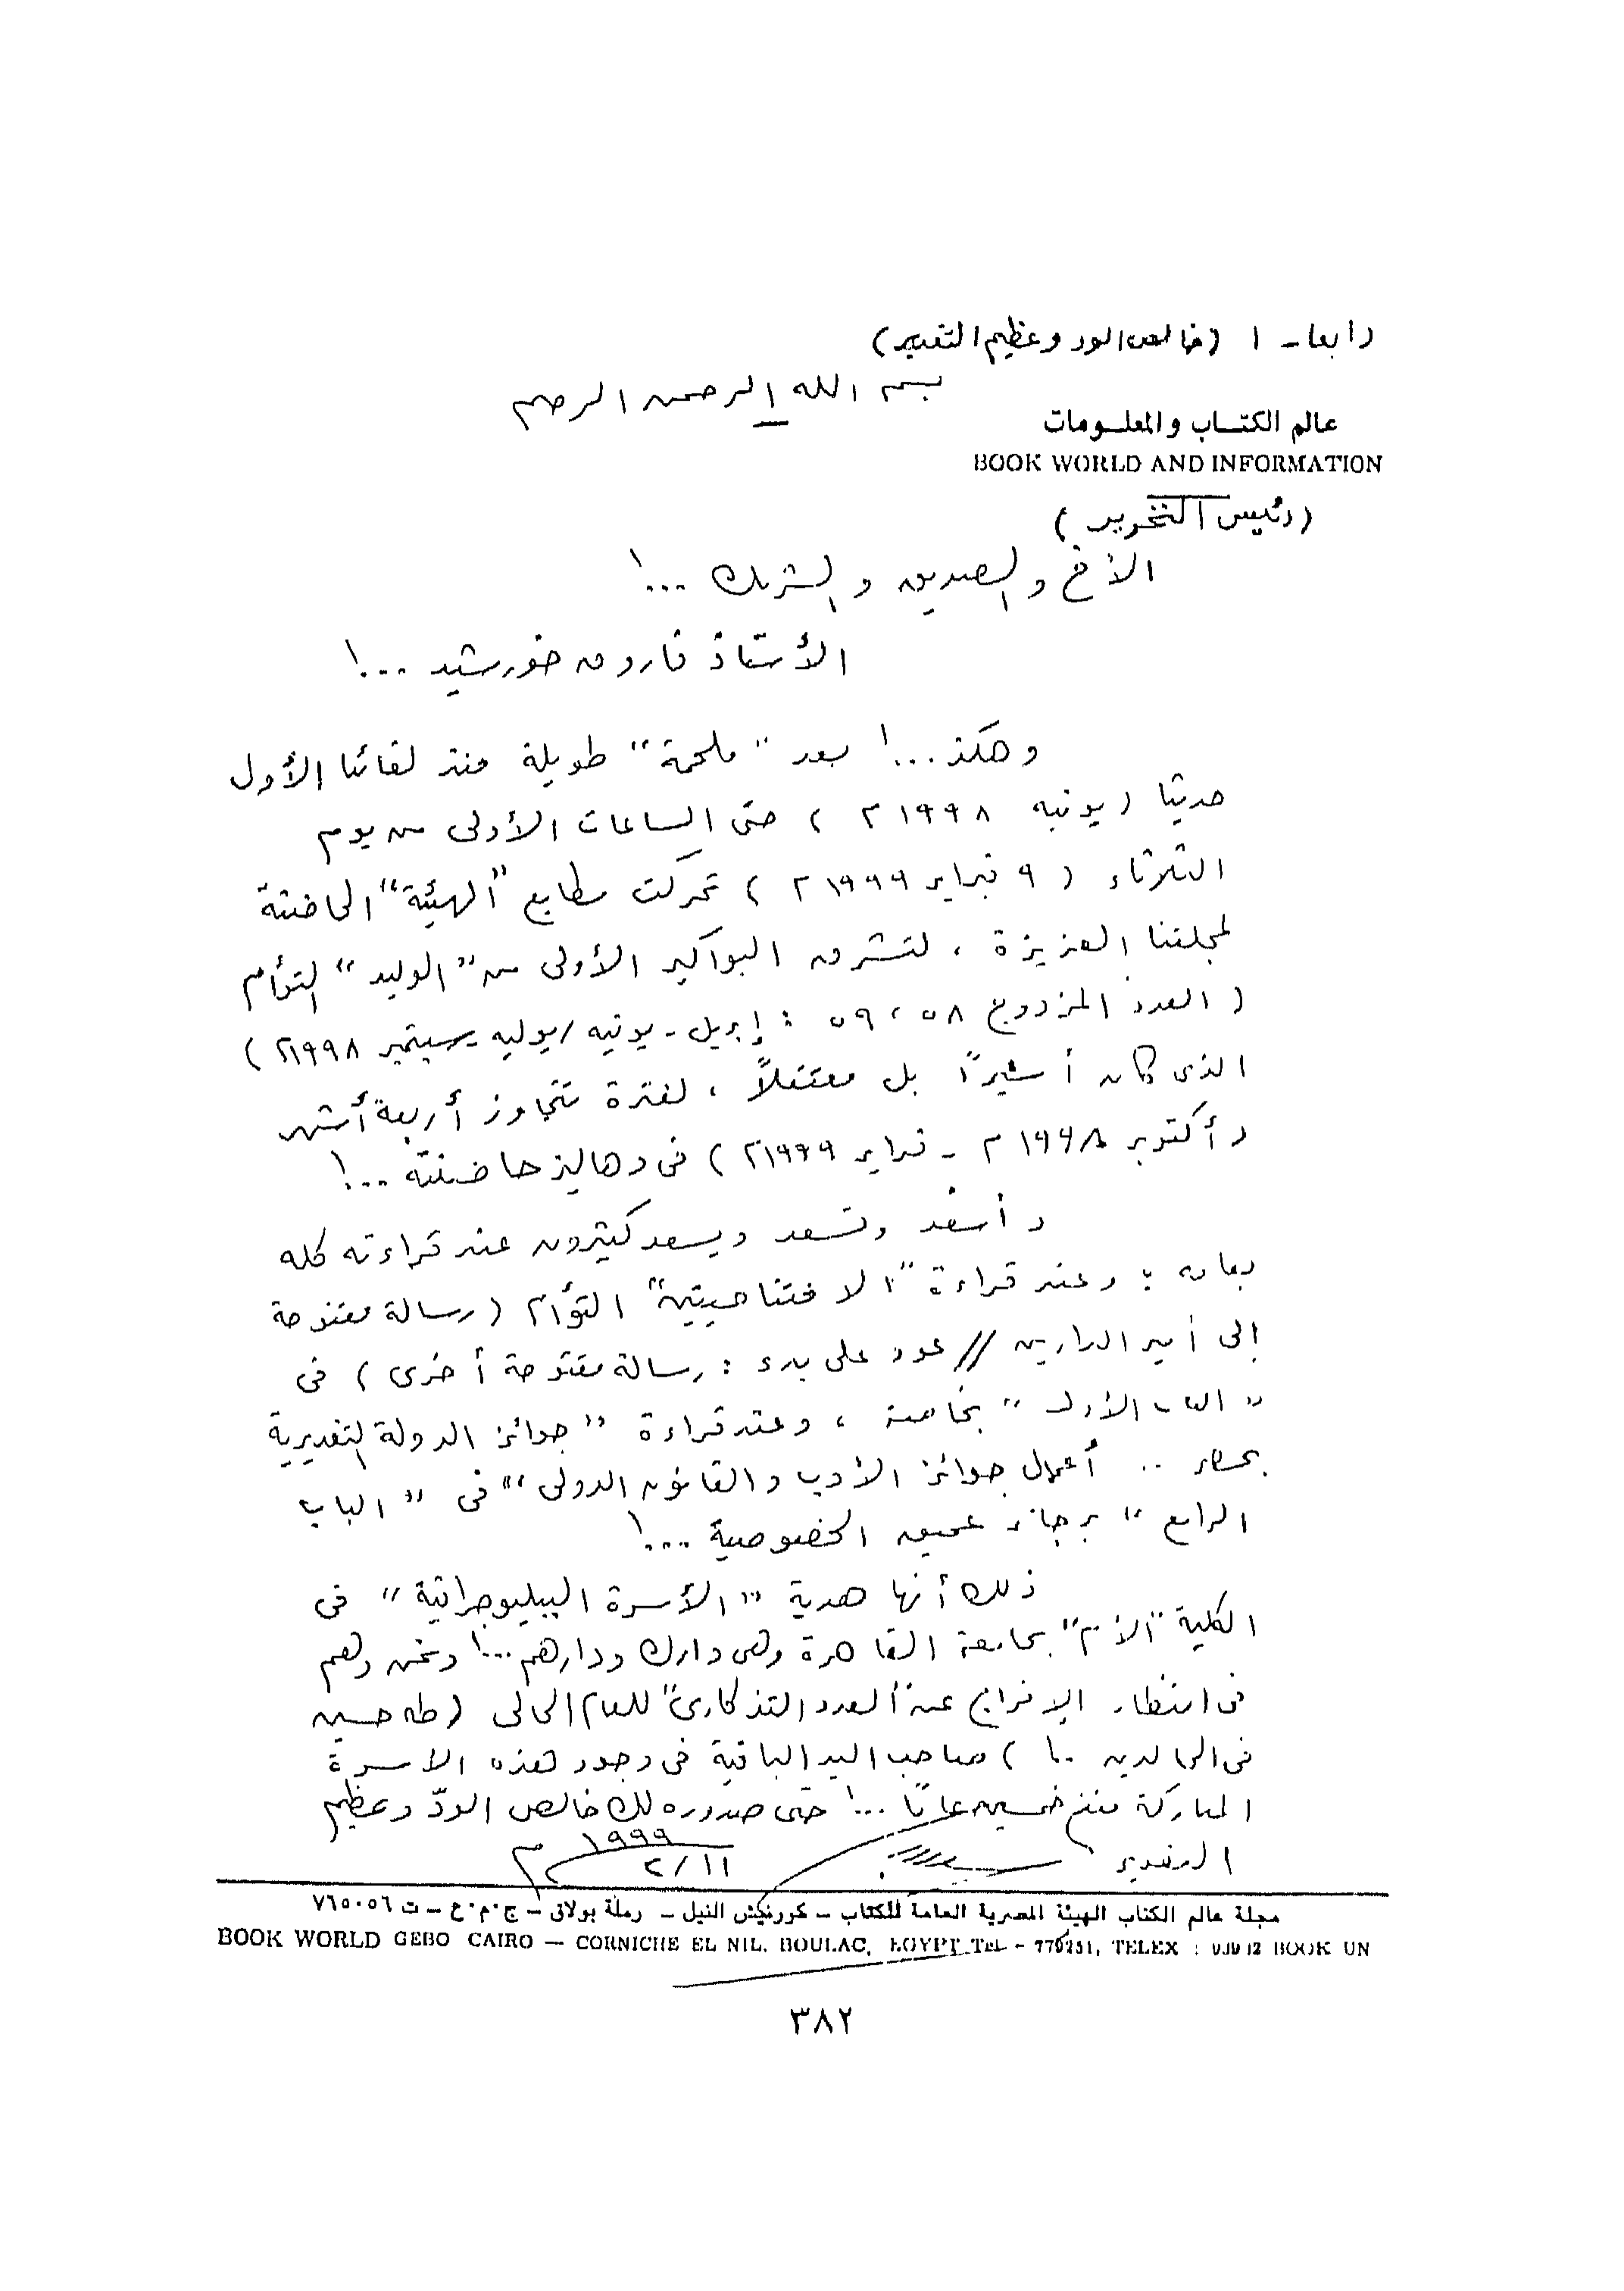 رابعا - ١ (خالص الود وعظيم التقدير)
بسم الله الرحمن الرحيم
عالم الكتاب والمعلومات
BOOK WORLD AND INFORMATION
(رئيس التحرير)
الأخ والصديق والشريك ...!
الأستاذ فاروق خورشيد ...!
وهكذ...! بعد "ملحمة" طويلة منذ لقائنا الأول
حديثا (يونيه ١٩٩٨ م) حتى الساعات الأولى من يوم
الثلاثاء (٩ فبراير ١٩٩٩ م) تحركت مطابع "الهيئة" الحاضنة
لمجلتنا العزيزة ، لتشرق البواكير الأولى من "الوليد" التوأم
(العدد المزدوج ٥٨ ، ٥٩ : إبريل - يونيه / يوليه - سبتمبر ١٩٩٨م)
الذى كان أسيرًا بل معتقلاً ، لفترة تتجاوز أربعة أشهر
(أكتوبر ١٩٩٨ م - فبراير ١٩٩٩م) فى دهاليز حاضنته ...!
وأسعد وتسعد ويسعد كثيرون عند قراءته كله
بعامة ؛ وعند قراءة "الافتتاحيتين" التوأم (رسالة مفتوحة
إلى أمير الدارين // عود على بدء : رسالة مفتوحة أخرى) فى
"الباب الأول" بخاصة ، وعند قراءة "جوائز الدولة التقديرية
بمصر .. أعمال جوائز الأدب والقانون الدولى" فى "الباب
الرابع" برجاء عميق الخصوصية ...!
ذلك أنها هدية "الأسرة الببليوجرافية" فى
الكلية "الأم" بجامعة القاهرة وهى دارك ودارهم ...! ونحن وهم
فى انتظار الإفراج عن "العدد التذكارى" للعام الحالى (طه حسين
فى الخالدين ..!) صاحب اليد الباقية فى وجود هذه الأسرة
المباركة منذ خمسين عامًا ...! حتى صدوره لك خالص الودّ وعظيم
التقدير
١٩٩٩
١١/٢ م
مجلة عالم الكتاب الهيئة المصرية العامة للكتاب - كورنيش النيل - رملة بولاق - ج.م.ع - ت ٧٦٥٠٥٦
BOOK WORLD GEBO CAIRO — CORNICHE EL NIL. BOULAC, EGYPT Tel - 775251, TELEX : BOOK UN
٣٨٢